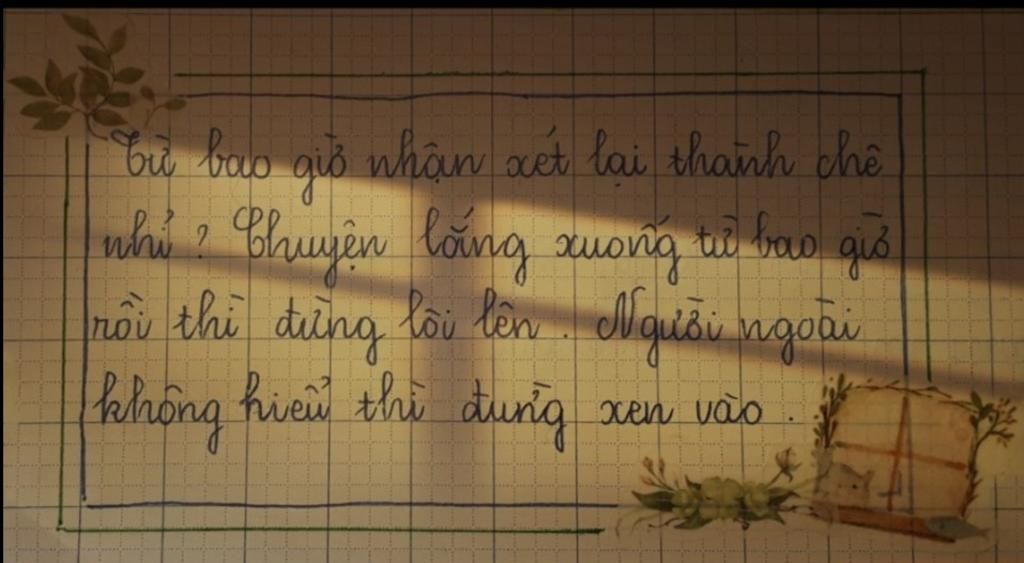 Từ bao giờ nhận xét lại thành chê
nhỉ ? Chuyện lắng xuống từ bao giờ
rồi thì đừng lôi lên . Người ngoài
không hiểu thì đừng xen vào .